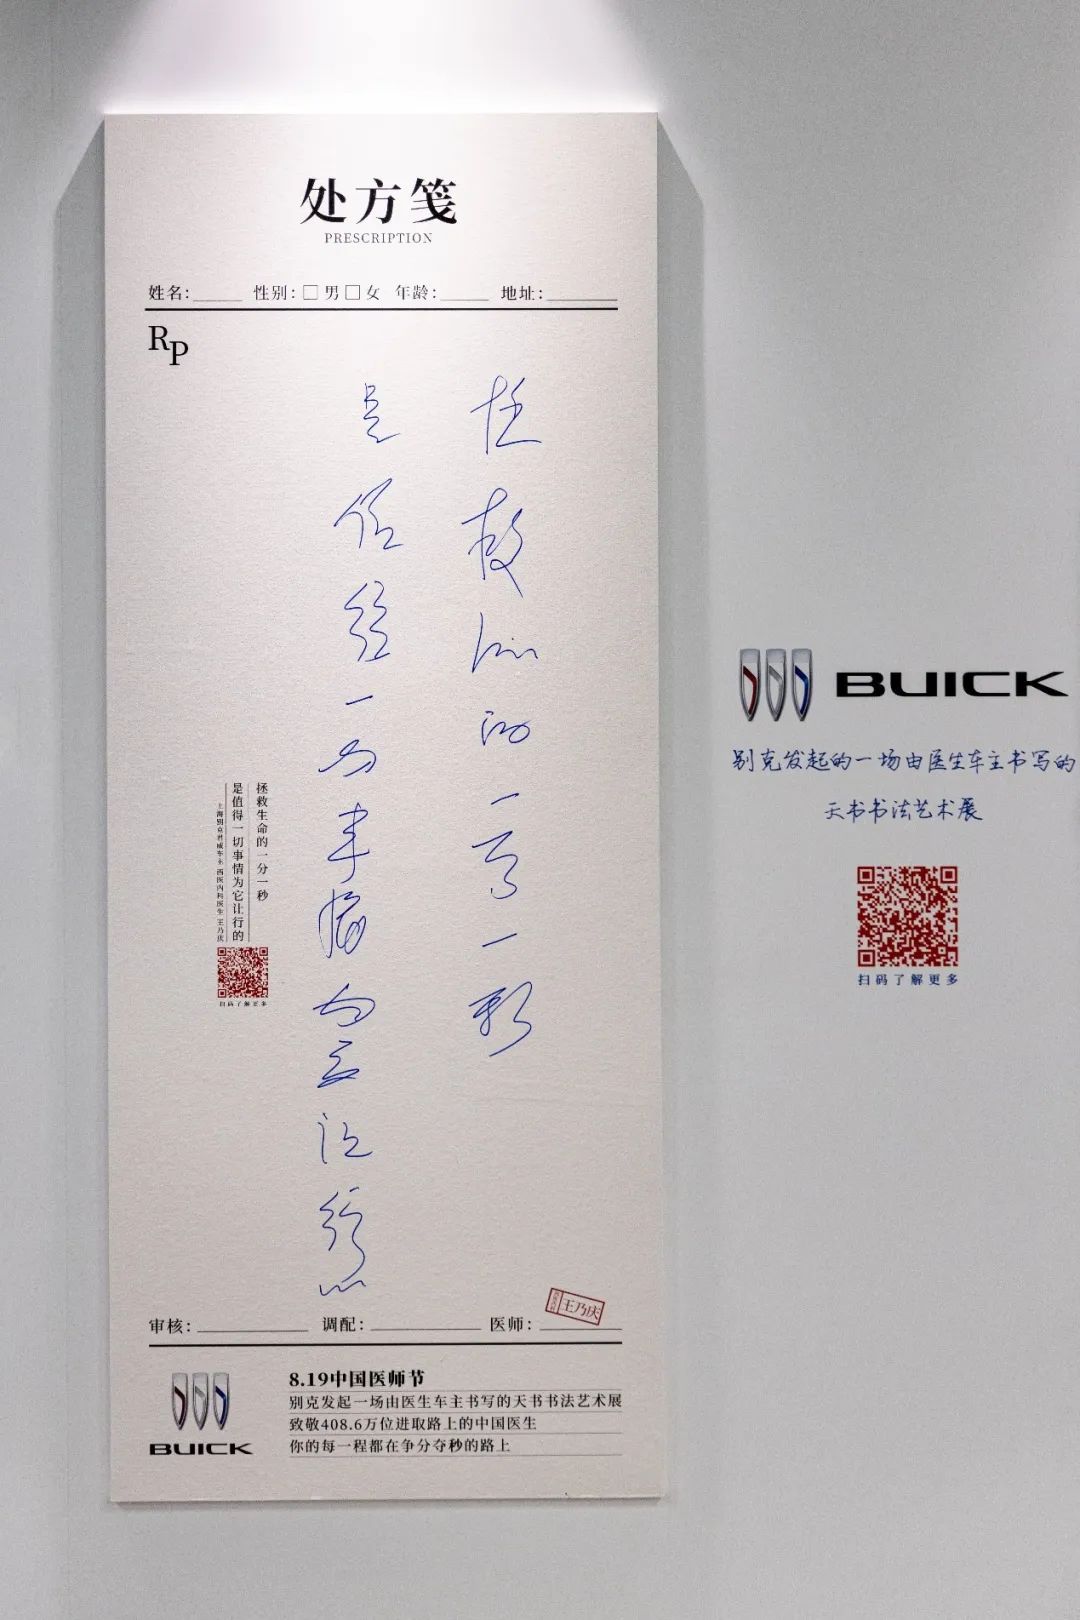 处方笺
PRESCRIPTION
姓名:_____ 性别:□男□女 年龄:_____ 地址:_______
RP
拯救生命的一分一秒
是值得一切事情为它让行的
拯救生命的一分一秒
是值得一切事情为它让行的
上海别克君威车主 西医内科医生 王乃庆
扫码了解更多
审核:___________ 调配:___________ 医师:________
王乃庆
BUICK
8.19中国医师节
别克发起一场由医生车主书写的天书书法艺术展
致敬408.6万位进取路上的中国医生
你的每一程都在争分夺秒的路上
BUICK
别克发起的一场由医生车主书写的
天书书法艺术展
扫码了解更多